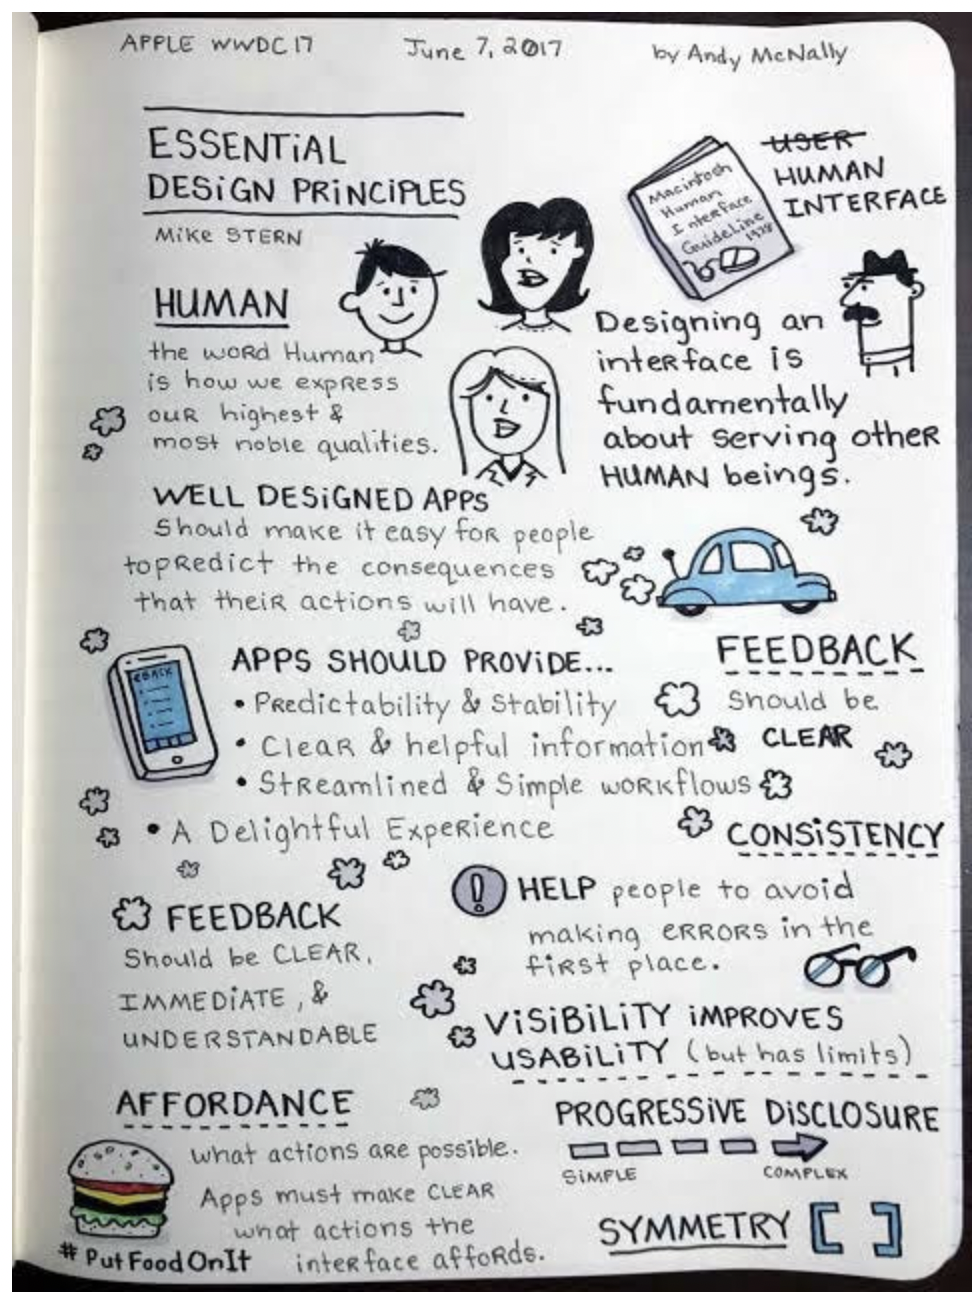 APPLE WWDC17 June 7, 2017 by Andy McNally
ESSENTiAL
DESiGN PRiNCiPLES
Mike STERN
USER
HUMAN
INTERFACE
Macintosh
Human
Interface
Guideline
HUMAN
the woRD Human
is how we expRess
ouR highest &
most noble qualities.
Designing an
inteRface is
fundamentally
about serving otheR
HUMAN beings.
WELL DESiGNED APPS
Should make it easy foR people
to pRedict the consequences
that theiR actions will have.
APPS SHOULD PROViDE...
• PRedictability & Stability
• CleaR & helpful information
• StReamlined & Simple woRKflows
• A Delightful ExpeRience
FEEDBACK
Should be
CLEAR
CONSiSTENCY
FEEDBACK
Should be CLEAR,
IMMEDiATE, &
UNDERSTANDABLE
HELP people to avoid
making ERRORS in the
fiRst place.
ViSiBiLiTY iMPROVES
USABiLiTY (but has limits)
AFFORDANCE
what actions aRe possible.
Apps must make CLEAR
what actions the
inteRface affoRds.
# PutFoodOnIt
PROGRESSiVE DiSCLOSURE
SiMPLE COMPLEX
SYMMETRY